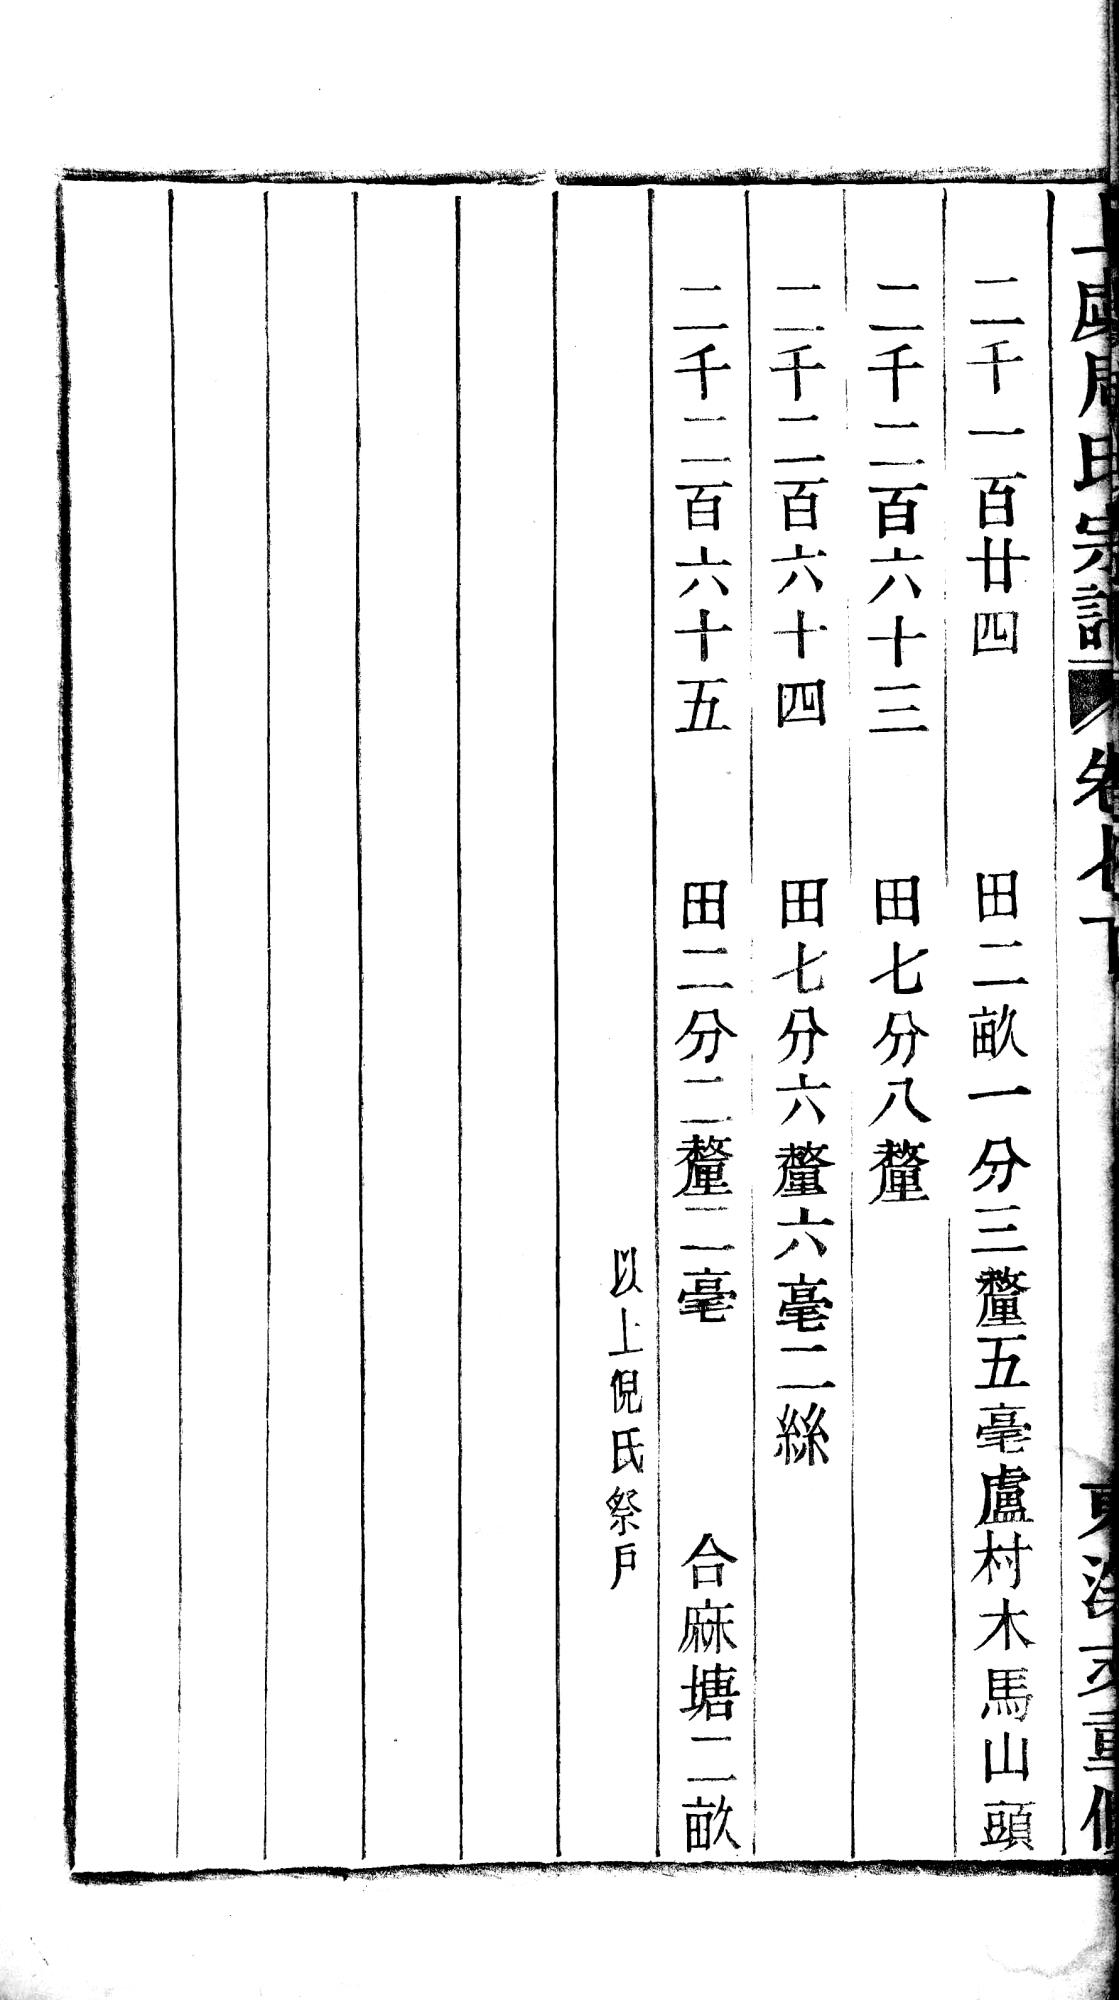 周氏宗譜 卷七下 重修
二千一百廿四 田二畝一分三釐五毫盧村木馬山頭
二千二百六十三 田七分八釐
二千二百六十四 田七分六釐六毫二絲
二千二百六十五 田二分二釐二毫 合麻塘二畝
以上倪氏祭戶